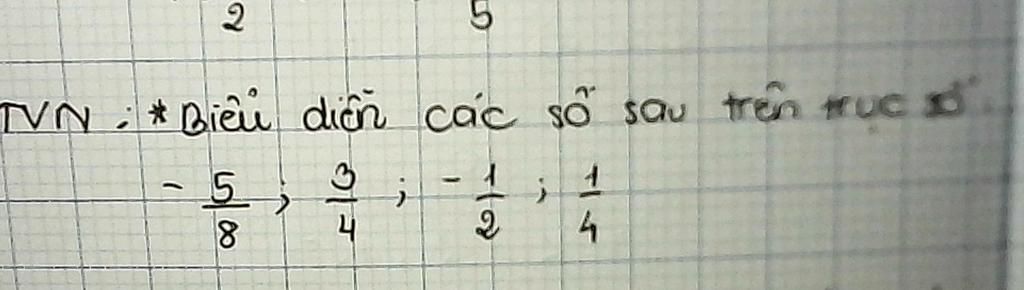 2 5
TVN : * Biểu diễn các số sau trên trục số
- 5/8 ; 3/4 ; - 1/2 ; 1/4